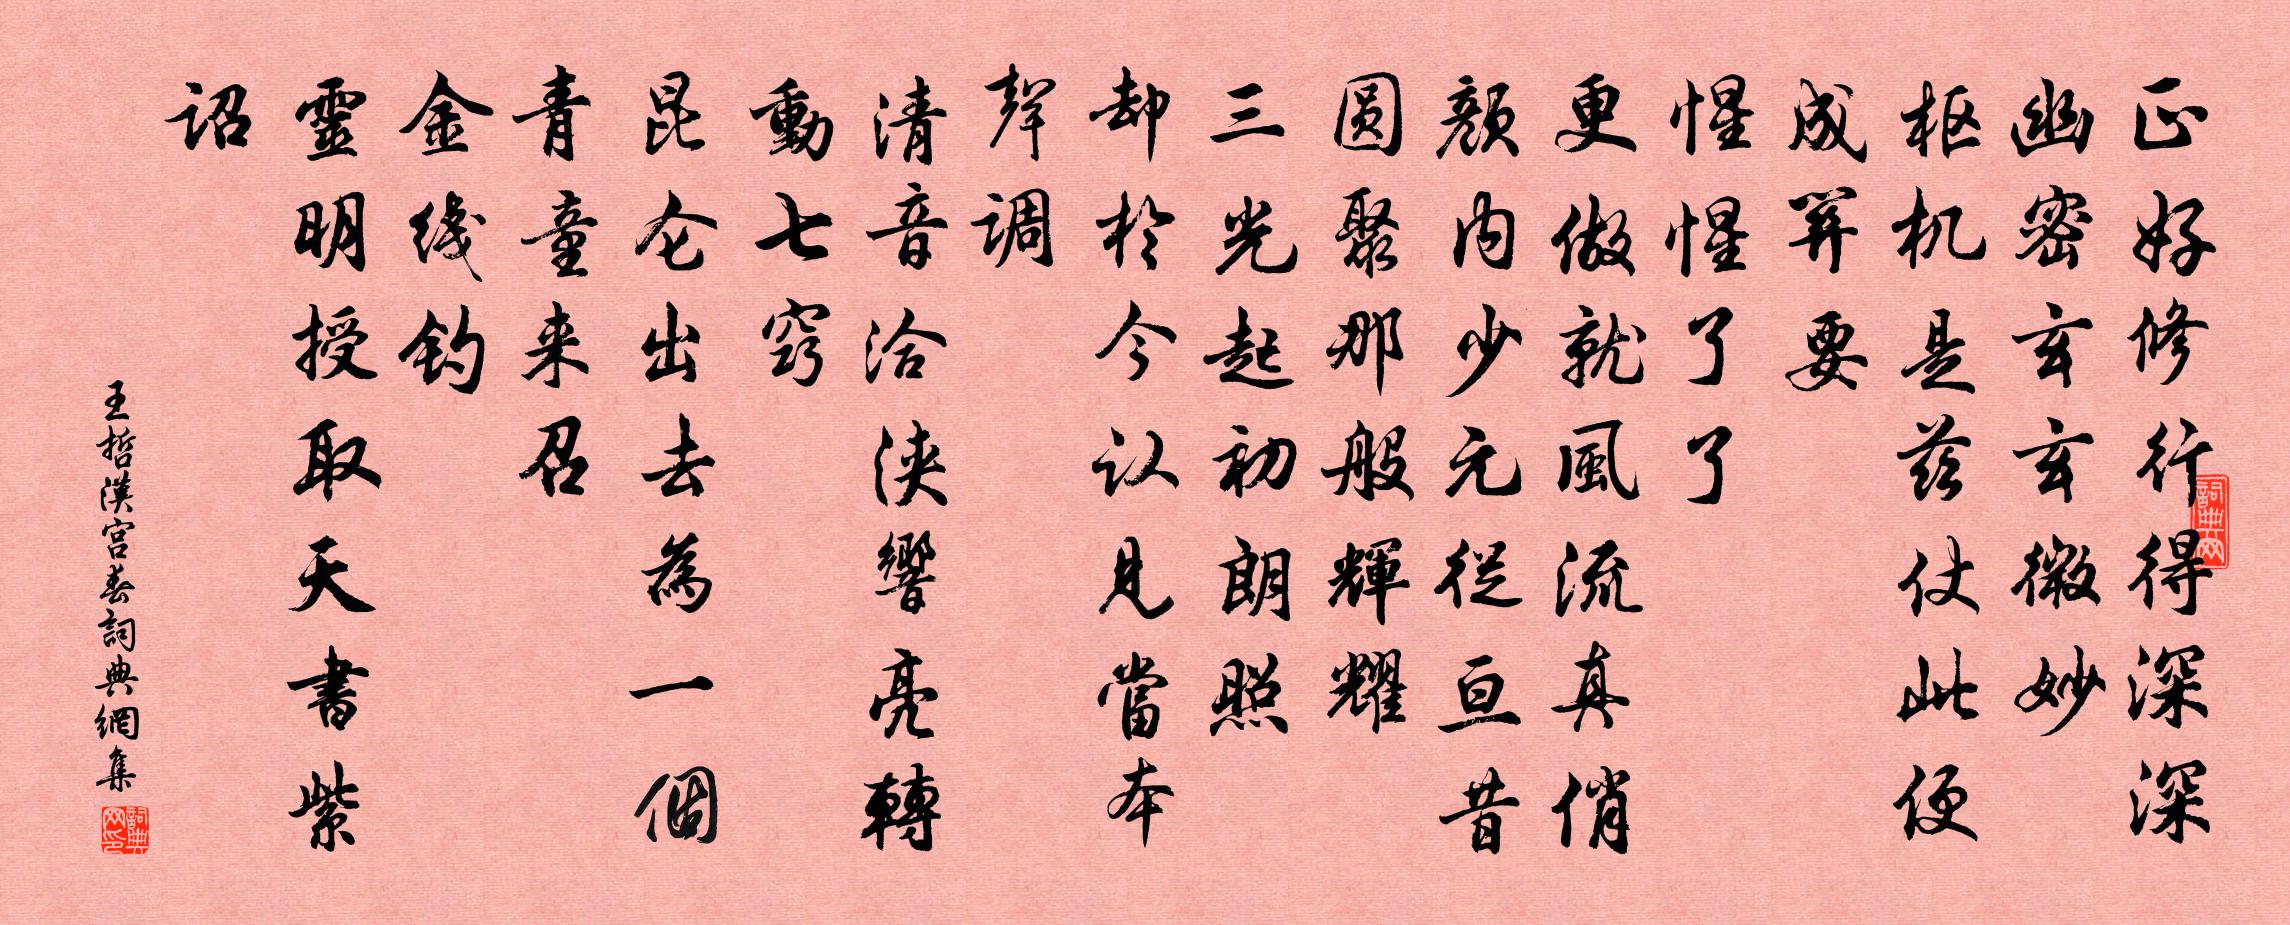 正好修行得深深
幽密玄玄微妙
枢机是兹仗此便
成筭要
惺惺了了
更做就風流真俏
颜内少元從亘昔
圆聚那般輝耀
三光起初朗照
却於今认見當本
聲调
清音洽浹響亮轉
動七窍
昆仑出去為一個
青童来召
金线钓
靈明授取天書紫
诏
王哲漢宫春詞典網集
詞典网
詞典网印